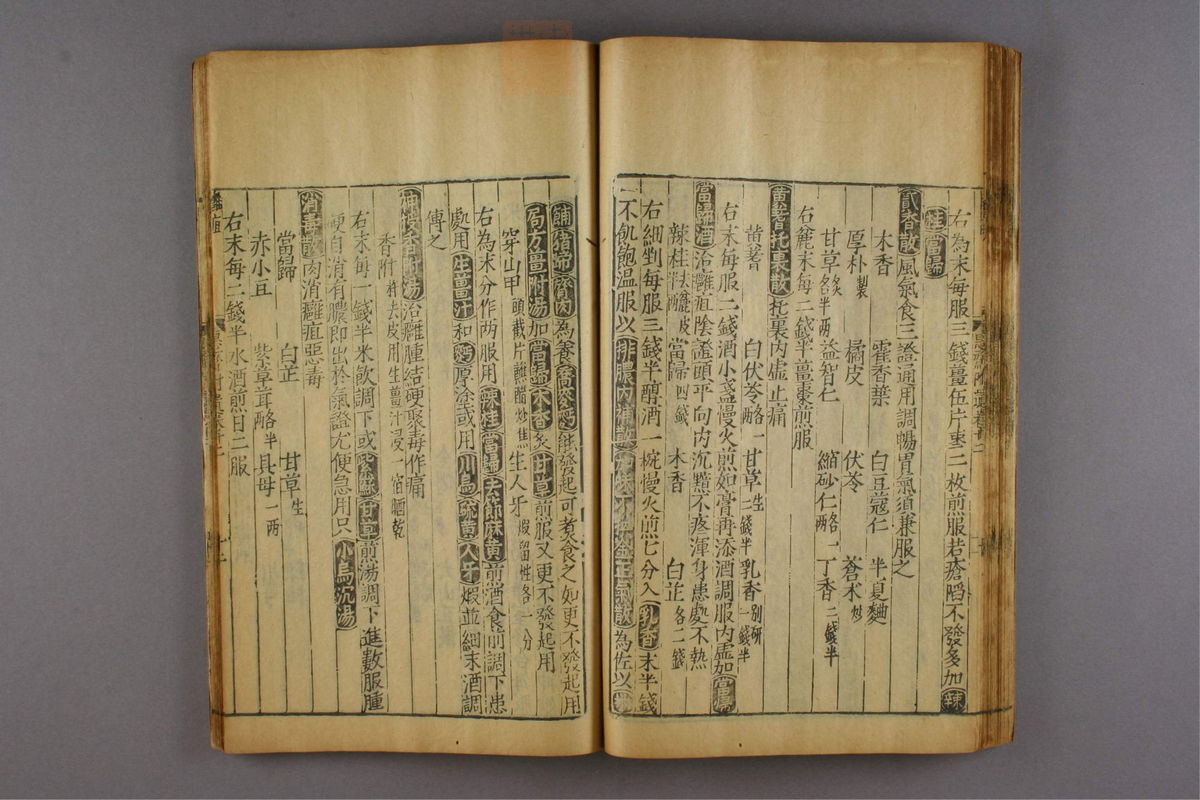 右為末每服三錢薑伍片棗二枚煎服若瘡陷不發多加辣
桂當歸
貳香散風氣食三證通用調暢胃氣須兼服之
木香 藿香葉 白豆蔻仁 半夏麯
厚朴製 橘皮 伏苓 蒼朮炒
甘草炙各半兩 益智仁 縮砂仁各一兩 丁香二錢半
右麄末每二錢半薑棗煎服
黄蓍托裏散托裏内虛止痛
黄蓍 白伏苓各一兩 甘草生二錢半 乳香別研一錢半
右末每服二錢酒小盞慢火煎如膏再添酒調服内虛如當歸
當歸酒治癰疽陰證頭平向内沉黯不疼渾身患處不熱
辣桂去麄皮半兩 當歸四錢 木香 白芷各二錢
右細剉每服三錢半醇酒一椀慢火煎七分入乳香末半錢
不飢飽温服以排膿内補散加味不換金正氣散為佐以
猪蹄 肉為養 能發起可煮食之如更不發起用
局方薑附湯加當歸木香炙甘草煎服又更不發起用
穿山甲頭截片蘸醋炒焦 生人牙煅留性各一分
右為末分作两服用辣桂當歸去節麻黄煎酒食前調下患
處用生薑汁和麪厚塗或用川烏硫黄人牙煅並細末酒調
傅之
神授香附湯治癰腫結硬聚毒作痛
香附 去皮用生薑汁浸一宿晒乾
右末每一錢半米飲調下或紫蘇甘草煎湯調下進數服腫
硬自消有膿即出於氣證尤便急用只小烏沉湯
消毒散内消癰疽惡毒
當歸 白芷 甘草生
赤小豆 紫草茸各半兩 貝母一两
右末每二錢半水酒煎日二服
癰疽